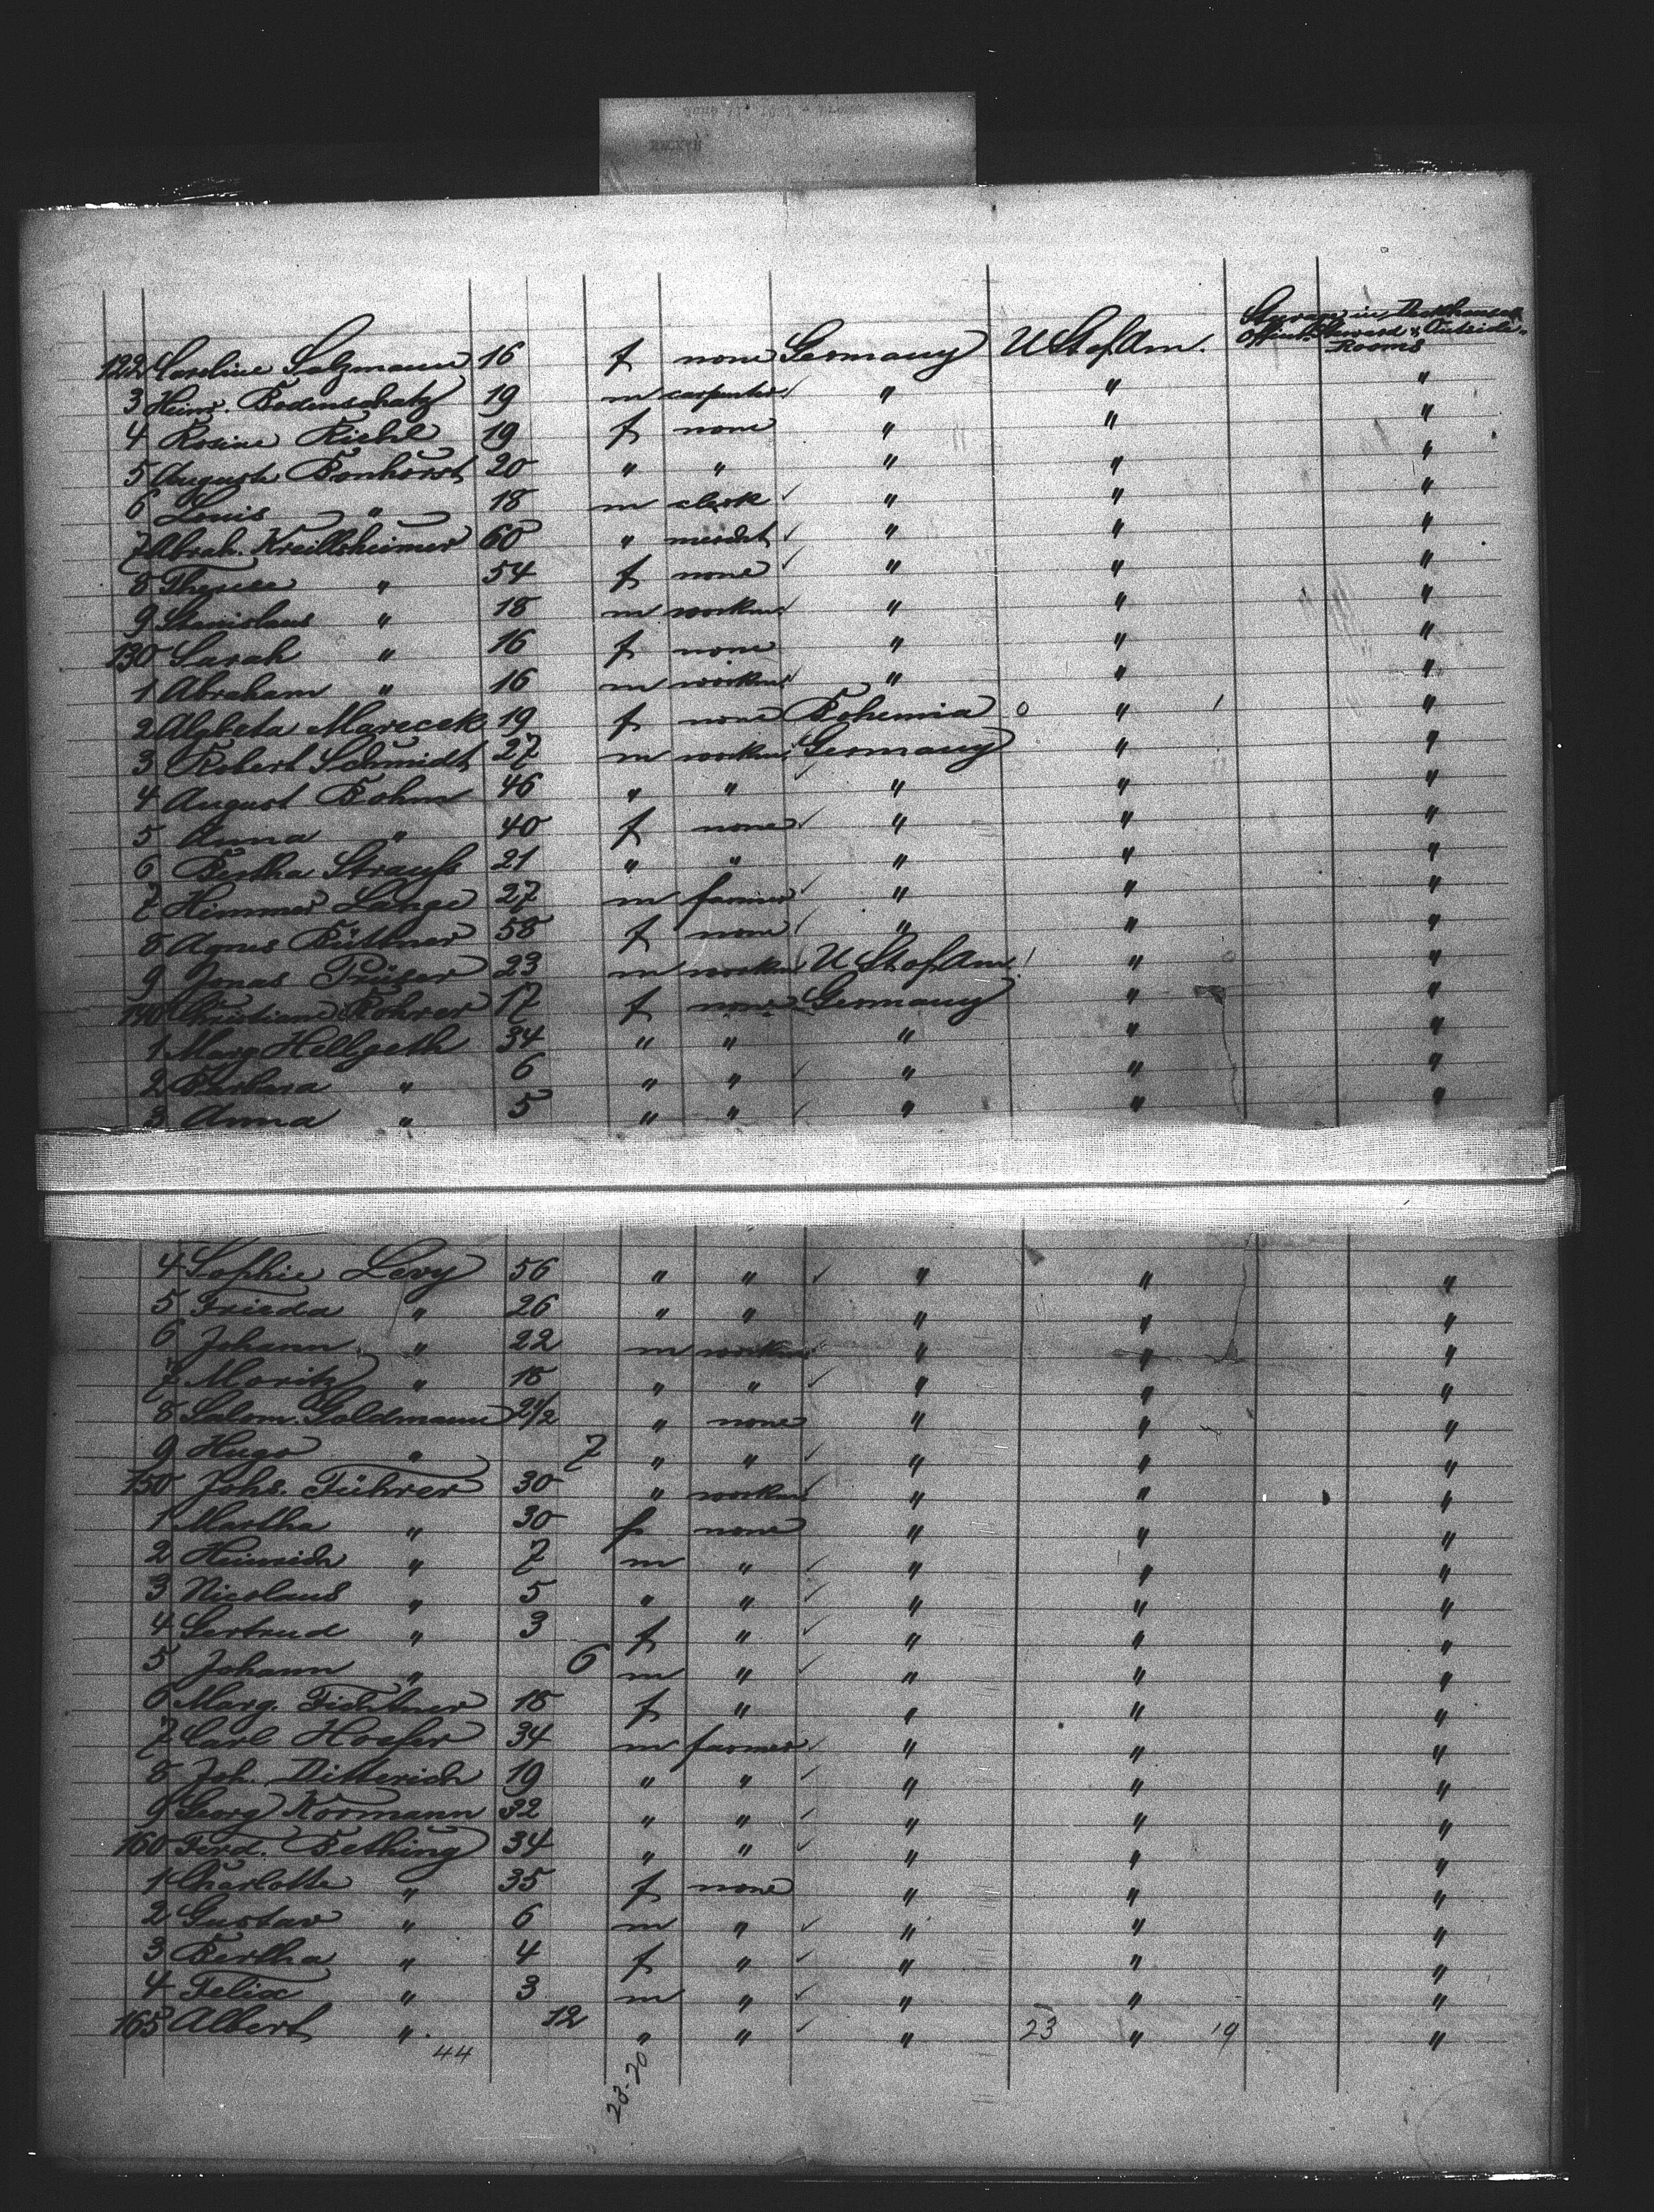 Steerage in Deckhouse &
Officers Steward & Outside
Rooms
122 Caroline Salzmann 16 f none Germany U St of Am.
3 Heinr. Bodenschatz 19 m carpenter " " "
4 Rosine Riehl 19 f none " " "
5 Auguste Bonhorst 20 " " " " "
6 Louis " 18 m clerk " " "
7 Abrah. Kreillsheimer 60 " mercht " " "
8 Therese " 54 f none " " "
9 Stanislaus " 18 m workm " " "
130 Sarah " 16 f none " " "
1 Abraham " 16 m workm " " "
2 Alzbeta Marecek 19 f none Bohemia " "
3 Robert Schmidt 27 m workm Germany " "
4 August Bohm 46 " " " " "
5 Anna " 40 f none " " "
6 Bertha Strauß 21 " " " " "
7 Himmer Lange 27 m farmer " " "
8 Agnes Büttner 58 f none " " "
9 Jonas Prüser 23 m workm U St of Am " "
140 Christiane Rohrer 17 f none Germany " "
1 Marg. Hellgeth 34 " " " " "
2 Barbara " 6 " " " " "
3 Anna " 5 " " " " "
4 Sophie Levy 56 " " " " "
5 Frieda " 26 " " " " "
6 Johann " 22 m workm " " "
7 Moritz " 18 " " " " "
8 Salom. Goldmann 2 1/2 " none " " "
9 Hugo " 7 " " " " "
150 Johs. Führer 30 " workm " " "
1 Martha " 30 f none " " "
2 Heinrich " 7 m " " " "
3 Nicolaus " 5 " " " " "
4 Gertrud " 3 f " " " "
5 Johann " 6 m " " " "
6 Marg. Fichtner 18 f " " " "
7 Carl Hoefer 34 m farmer " " "
8 Joh. Ditterich 19 " " " " "
9 Georg Normann 32 " " " " "
160 Ferd. Bething 34 " " " " "
1 Charlotte " 35 f none " " "
2 Gustav " 6 m " " " "
3 Bertha " 4 f " " " "
4 Felix " 3 m " " " "
165 Albert " 12 " " " 23 " 19 "
44
23-20